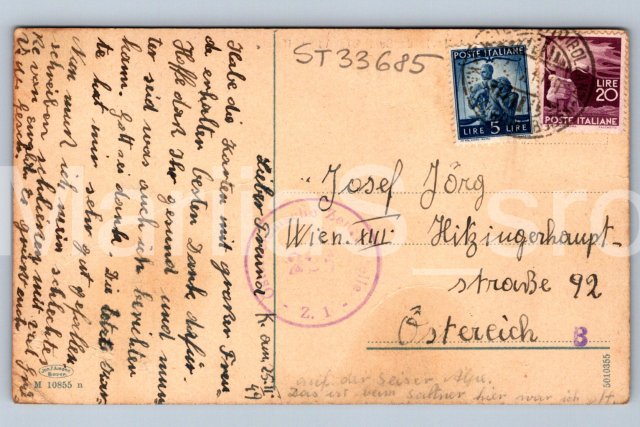 ST33685
POSTE ITALIANE
LIRE 5 LIRE
LIRE
20
POSTE ITALIANE
Lieber Freund! K. am 25.II 49
Habe die Karten mit großer Freu
de erhalten besten Dank dafür.
Hoffe daß Ihr gesund und mun
ter seid was auch ich berichten
kann, Gott sei dank. Die letzte Kar
te hat mir sehr gut gefallen.
Nun muß ich mein schlechtes
schreiben
Josef Jörg
Wien XIII Hitzingerhaupt-
straße 92
Östereich
B
Z. 1
M 10855 n
5010355
auf der Seiser Alpe.
Das ist beim Saltner hier war ich oft.
MariaS_sro